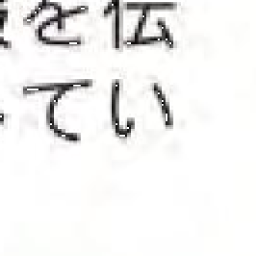 を伝
てい